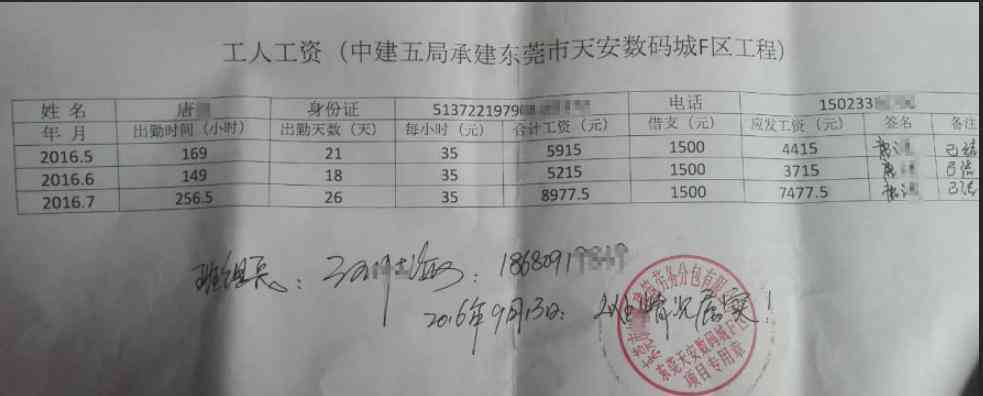 工人工资（中建五局承建东莞市天安数码城F区工程)
姓 名 唐 身份证 5137221979 电话 150233
年 月 出勤时间（小时） 出勤天数（天） 每小时（元） 合计工资（元） 借支（元） 应发工资（元） 签名 备注
2016.5 169 21 35 5915 1500 4415
2016.6 149 18 35 5215 1500 3715
2016.7 256.5 26 35 8977.5 1500 7477.5
班组长： 1868091
2016年9月13日： 以上情况属实！
劳务分包有限
东莞天安数码城F区
项目专用章